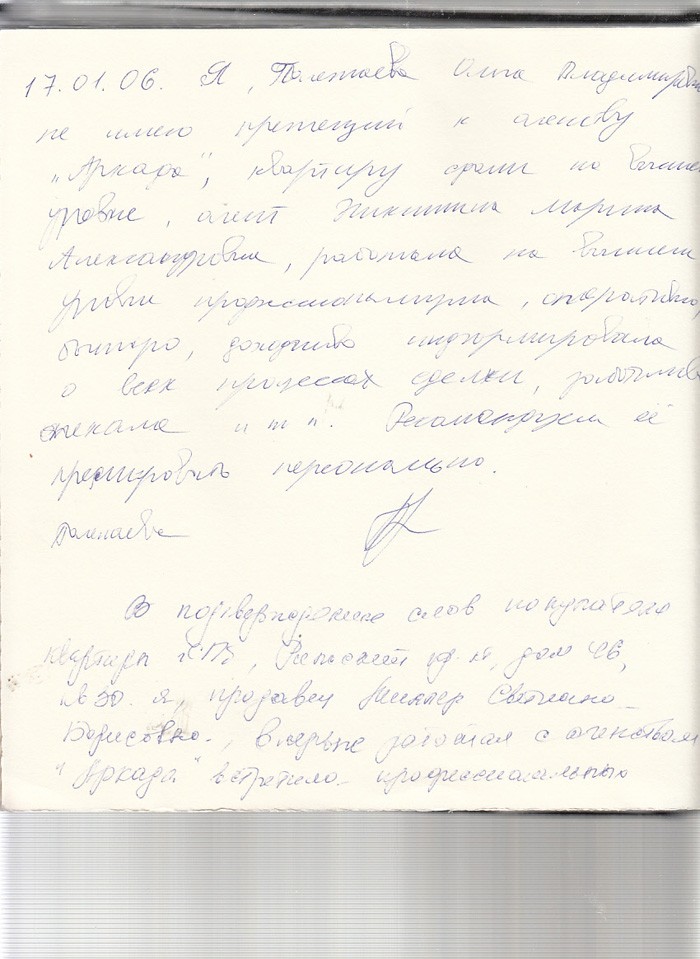 17.01.06. Я, Ольга Владимировна
не имею претензий к агенству
"Аркада", квартиру сдали на высшем
уровне, агент Никитина Марина
Александровна, работала на высшем
уровне профессионализма, оперативно,
быстро, доходчиво информировала
о всех процессах сделки,
и т п. Рекомендуем её
премировать персонально.
В подтверждение слов покупателя
квартиры г. СПб, дом 46,
кв 30. я, продавец Светлана
Борисовна, впервые работая с агенством
"Аркада" встретила профессиональный